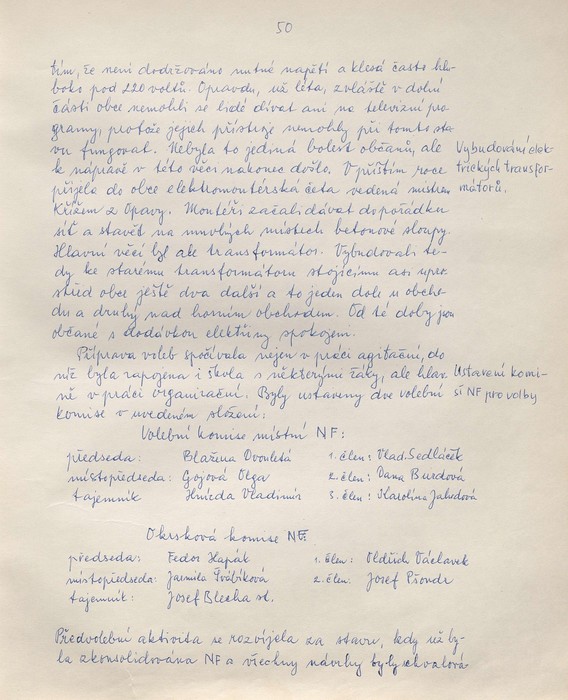 50
tím, že není dodržováno nutné napětí a klesá často hlu-
boko pod 220 voltů. Opravdu, už léta, zvláště v dolní
části obce nemohli se lidé dívat ani na televizní pro-
gramy, protože jejich přístroje nemohly při tomto sta-
vu fungovat. Nebyla to jediná bolest občanů, ale
k nápravě v této věci nakonec došlo. V příštím roce
přijela do obce elektromontérská četa vedená mistrem
Křížem z Opavy. Montéři začali dávat do pořádku
síť a stavět na mnohých místech betonové sloupy.
Hlavní věcí byl ale transformátor. Vybudovali te-
dy ke starému transformátoru stojícímu asi upro-
střed obce ještě dva další a to jeden dole u obcho-
du a druhý nad horním obchodem. Od té doby jsou
občané s dodávkou elektřiny spokojeni.
Vybudování elek-
trických transfor-
mátorů.
Příprava voleb spočívala nejen v práci agitační, do
níž byla zapojena i škola s některými žáky, ale hlav-
ně v práci organizační. Byly ustaveny dvě volební
komise v uvedeném složení:
Ustavení komi-
sí NF pro volby
Volební komise místní NF:
předseda: Blažena Dvouletá 1. člen: Vlad. Sedláček
místopředseda: Gojová Olga 2. člen: Dana Burdová
tajemník Hnieda Vladimír 3. člen: Karolina Jahodová
Okrsková komise NF:
předseda: Fedor Hapák 1. člen: Oldřich Václavek
místopředseda: Jarmila Švábíková 2. člen: Josef Pšondr
tajemník: Josef Blecha st.
Předvolební aktivita se rozvíjela za stavu, kdy už by-
la zkonsolidována NF a všechny návrhy byly schvalová-